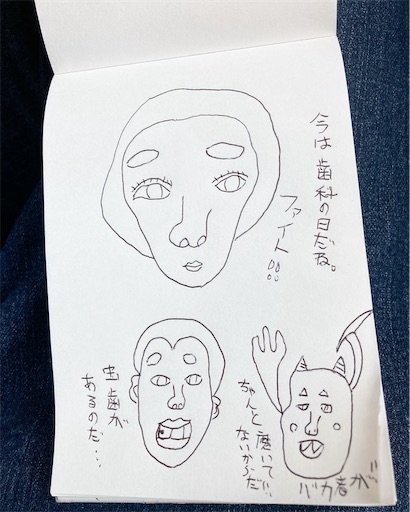 今は歯科の日だね。
ファイト!!
虫歯が
あるのだ…
ちゃんと磨いて
ないからだ
バカ者が!!